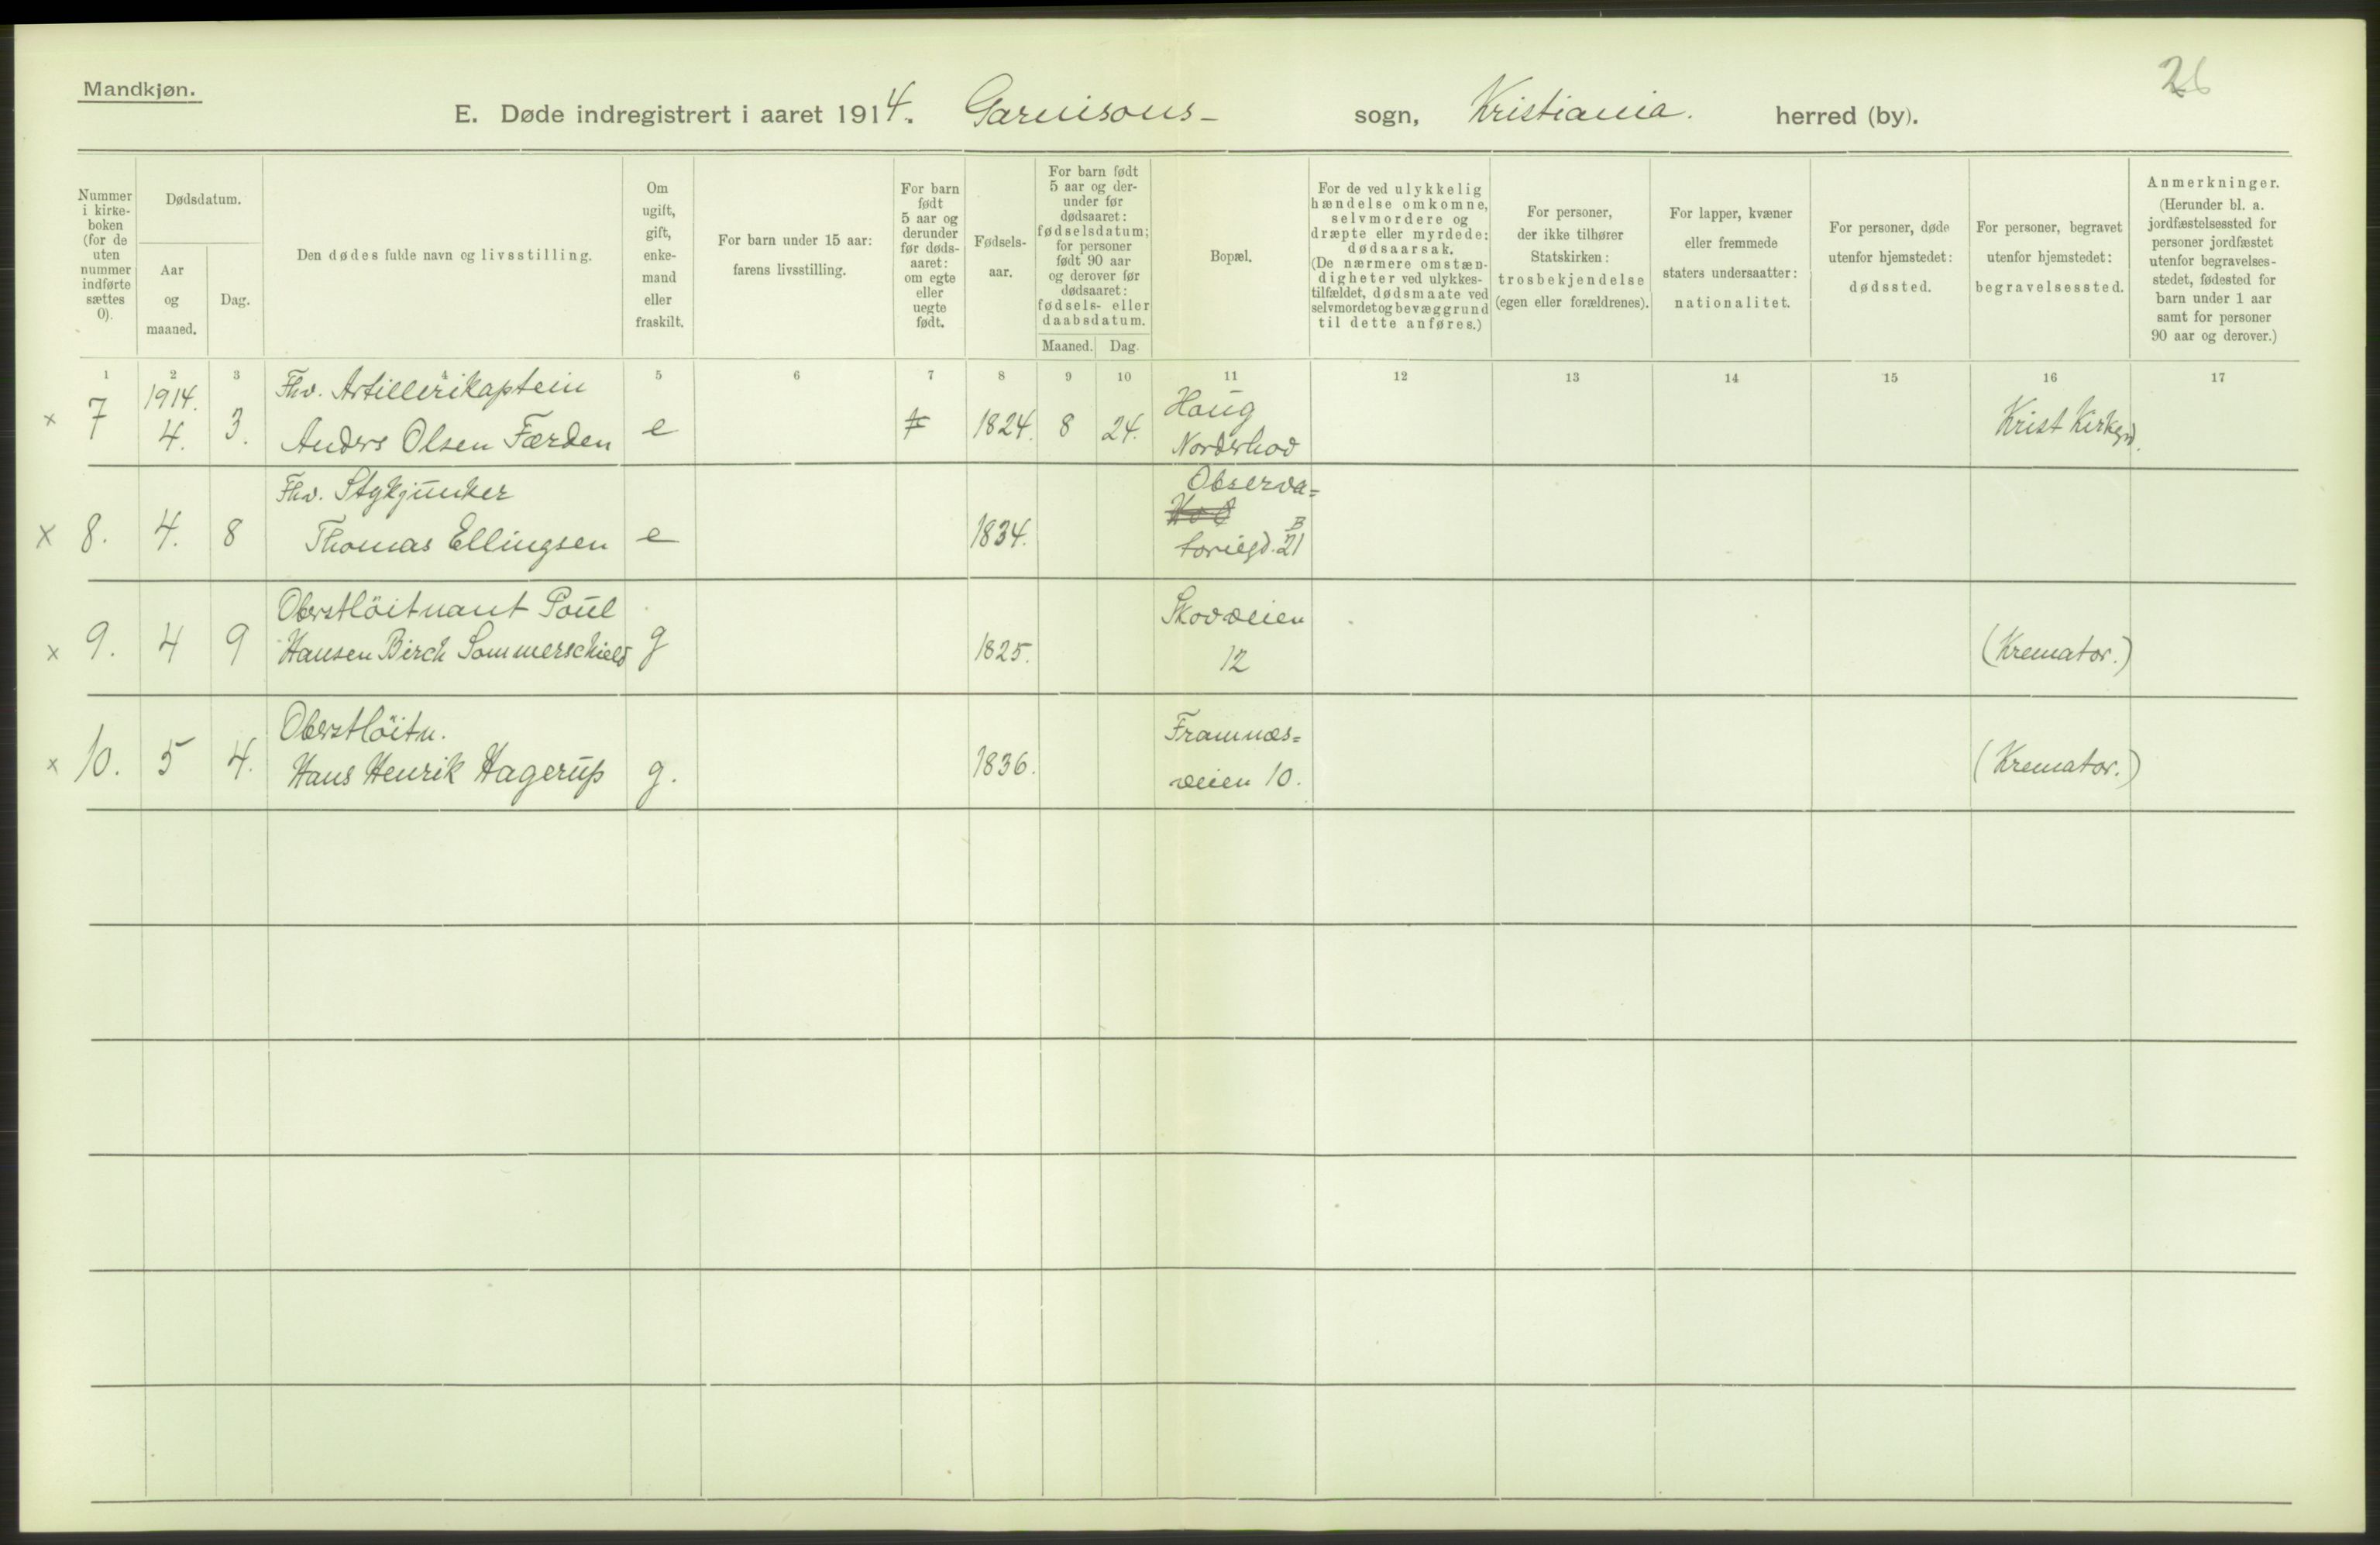 Mandkjøn.
E. Døde indregistrert i aaret 1914. Garnisons- sogn, Kristiania. herred (by).
26
Nummer
i kirke-
boken
(for de
uten
nummer
indførte
sættes
0).
Dødsdatum.
Aar
og
maaned.
Dag.
Den dødes fulde navn og livsstilling.
Om
ugift,
gift,
enke-
mand
eller
fraskilt.
For barn under 15 aar:
farens livsstilling.
For barn
født
5 aar og
derunder
før døds-
aaret:
om egte
eller
uegte
født.
Fødsels-
aar.
For barn født
5 aar og der-
under før
dødsaaret:
fødselsdatum;
for personer
født 90 aar
og derover før
dødsaaret:
fødsels- eller
daabsdatum.
Maaned. Dag.
Bopæl.
For de ved ulykkelig
hændelse omkomne,
selvmordere og
dræpte eller myrdede:
dødsaarsak.
(De nærmere omstæn-
digheter ved ulykkes-
tilfældet, dødsmaate ved
selvmordet og bevæggrund
til dette anføres.)
For personer,
der ikke tilhører
Statskirken:
trosbekjendelse
(egen eller forældrenes).
For lapper, kvæner
eller fremmede
staters undersaatter:
nationalitet.
For personer, døde
utenfor hjemstedet:
dødssted.
For personer, begravet
utenfor hjemstedet:
begravelsessted.
Anmerkninger.
(Herunder bl. a.
jordfæstelsessted for
personer jordfæstet
utenfor begravelses-
stedet, fødested for
barn under 1 aar
samt for personer
90 aar og derover.)
1 2 3 4 5 6 7 8 9 10 11 12 13 14 15 16 17
1914. Fhv. Artillerikaptein Haug
x 7 4. 3. Anders Olsen Færden e 1824. 8 24. Norderhov Krist Kirkegrd.
Fhv. Stykjunker Observa=
x 8. 4. 8 Thomas Ellingsen e 1834. toriegd. 21 B
Oberstlöitnant Poul Skovveien
x 9. 4 9 Hansen Birch Sommerschield g 1825. 12 (Kremator.)
Oberstlöitn. Framnæs=
x 10. 5 4. Hans Henrik Hagerup g. 1836. veien 10. (Kremator.)